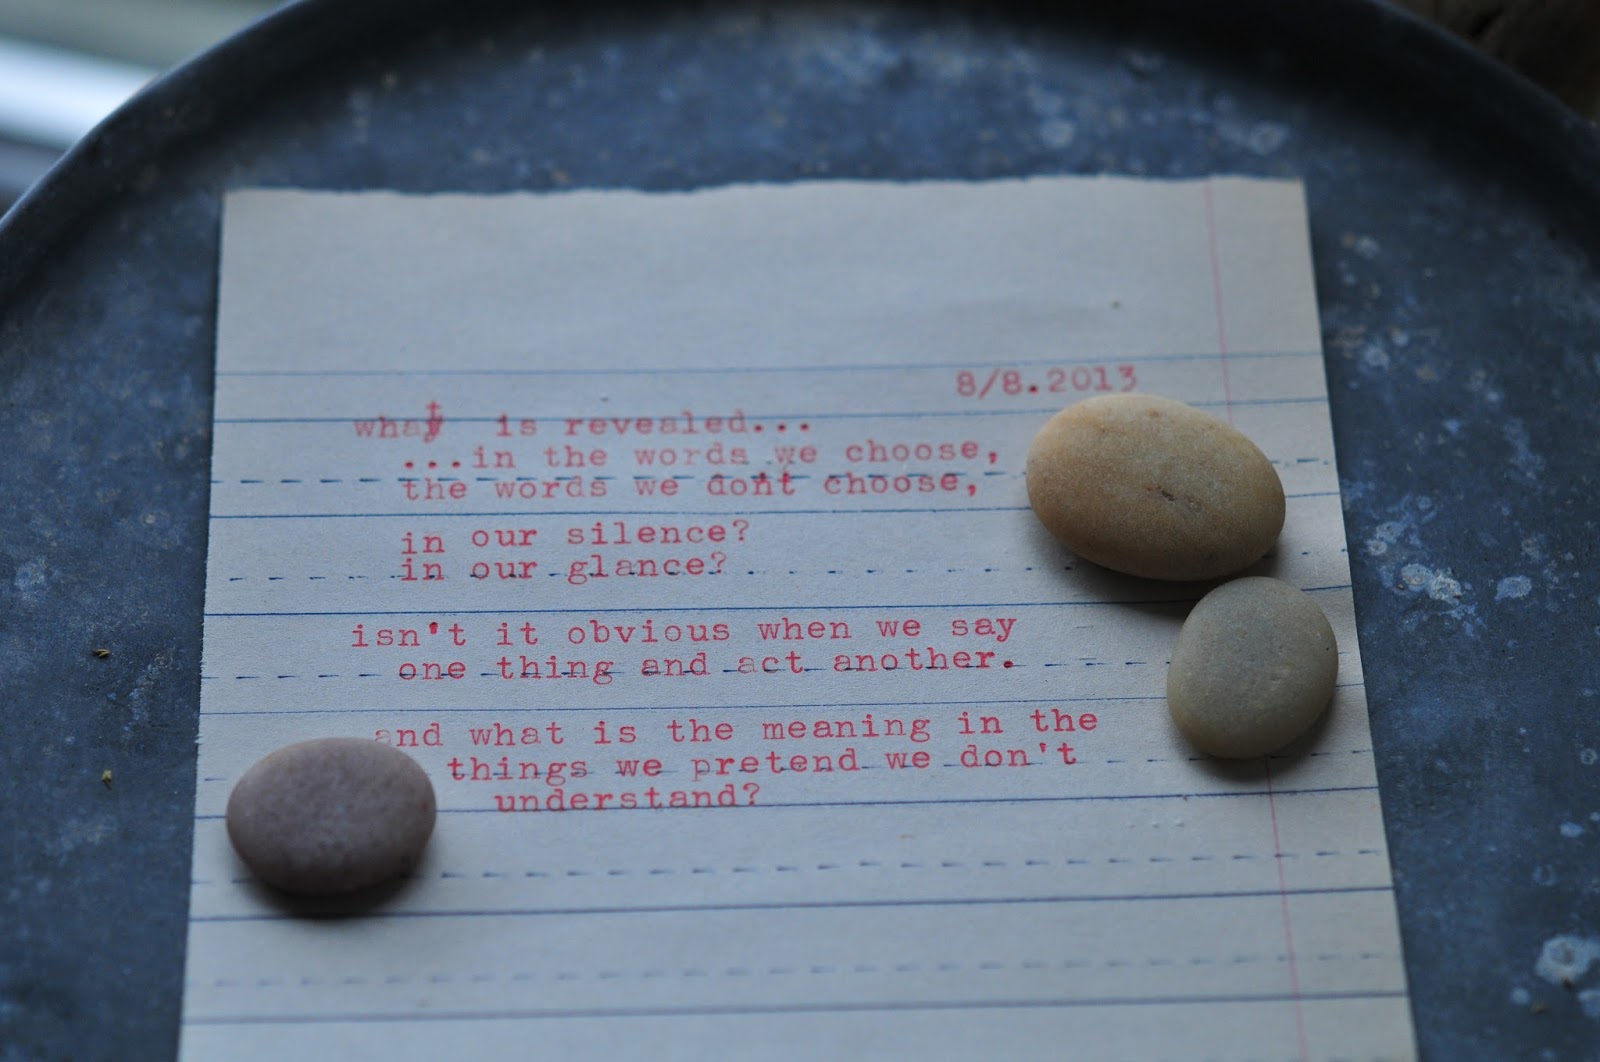 8/8.2013
what is revealed...
...in the words we choose,
the words we dont choose,
in our silence?
in our glance?
isn't it obvious when we say
one thing and act another.
and what is the meaning in the
things we pretend we don't
understand?